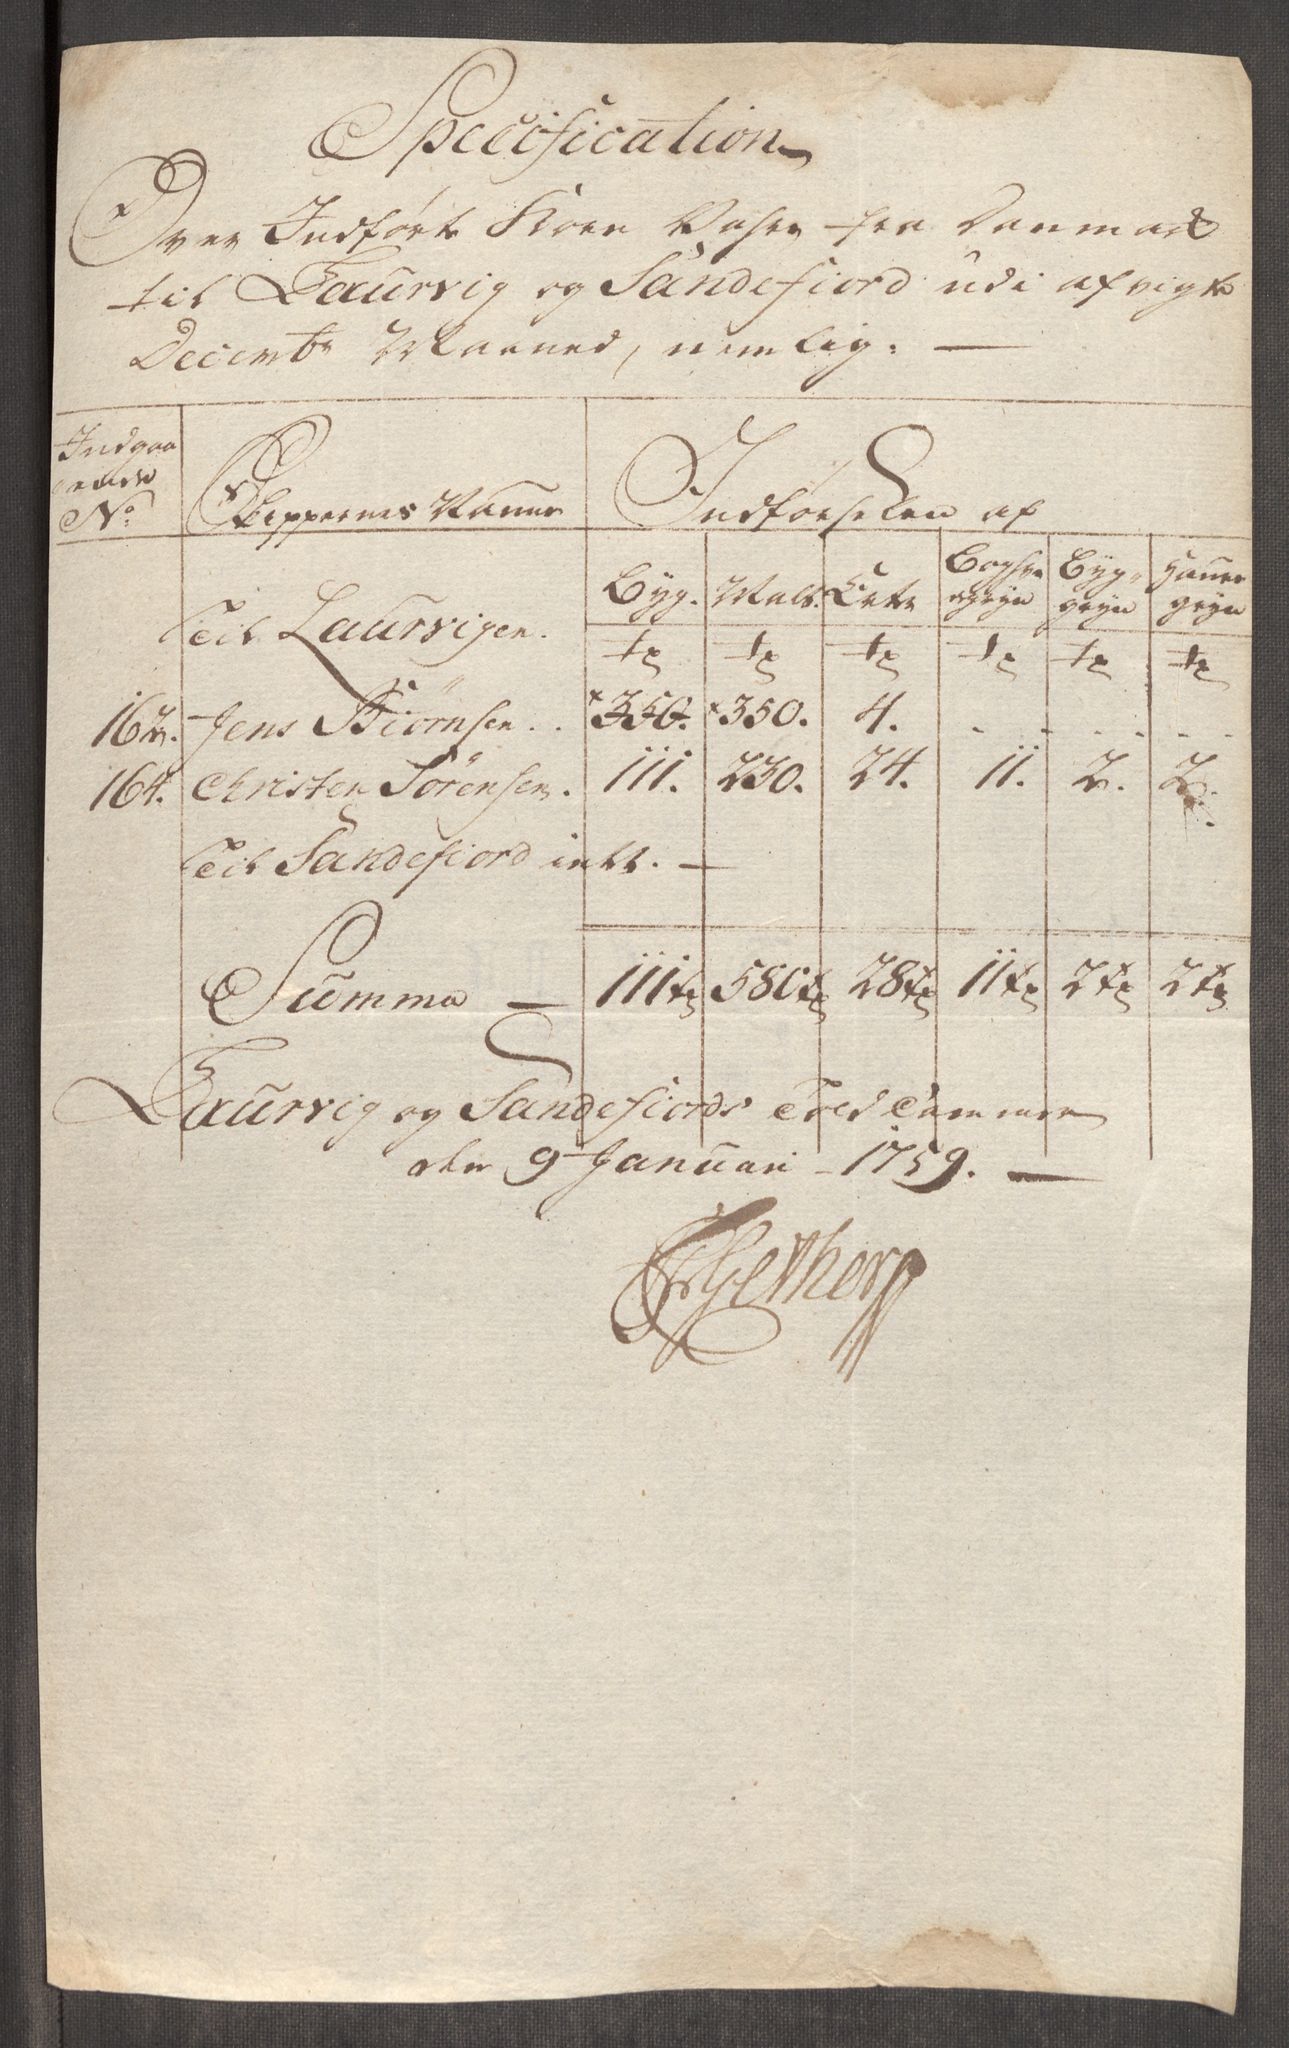 Specification
Over Indførte Korn Vahre fra Danmark
til Laurvig og Sandefiord udi afvigte
Decembr Maaned, nemlig.
Indgaa
ende
No
Skippernes Naune
Indførselen af
Byg. Malt. Erter Boghve Byg- Hauer
gryn gryn gryn
Til Laurvigen.
tr tr tr tr tr tr
162. Jens Biørnsen. . 350. 350. 4. . . . . . .
164. Christen Sørensen. 111. 230. 24. 11. 2. 2.
Til Sandefiord intet. —
Summa — 111 tr 580 tr 28 tr 11 tr 2 tr 2 tr
Laurvig og Sandefiords Told Cammer
den 9 Januari 1759. —